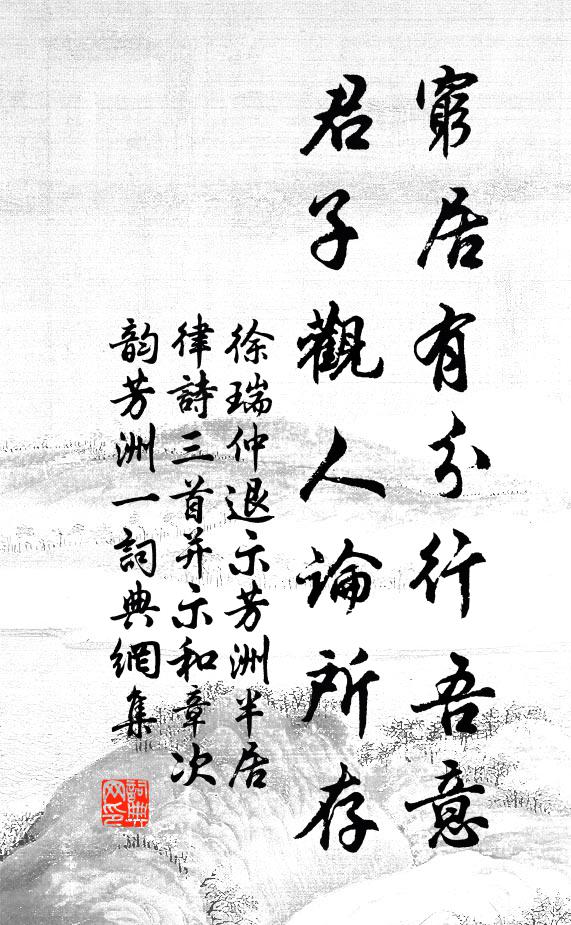 窮居有分行吾意
君子觀人論所存
徐瑞仲退示芳洲半居
律詩三首并示和章次
韵芳洲一詞典網集
詞典網印